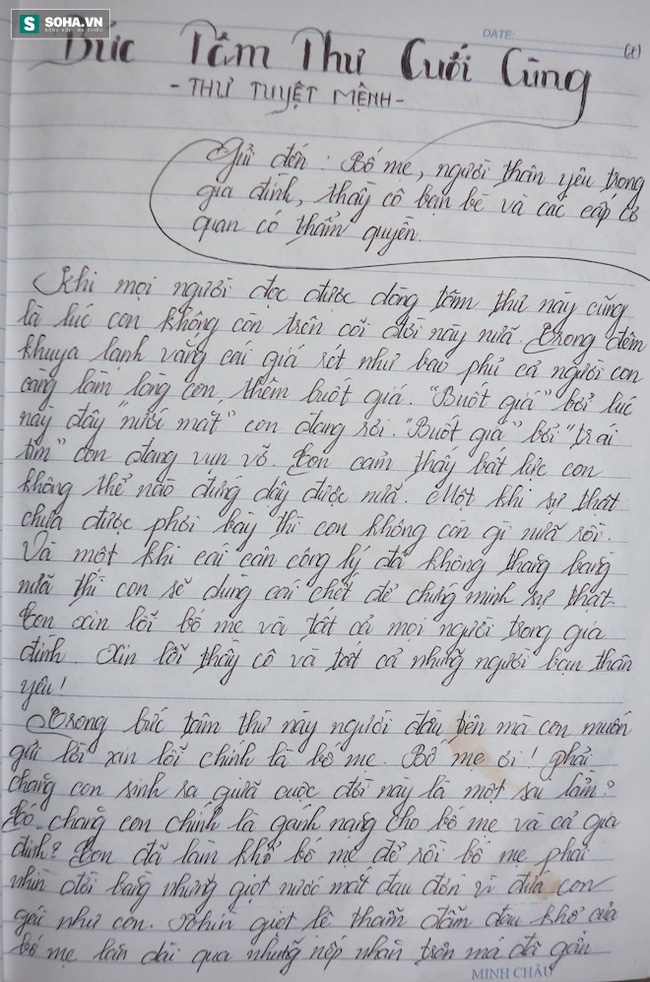 SOHA.VN
DATE:
(1)
Bức Tâm Thư Cuối Cùng
- THƯ TUYỆT MỆNH -
Gửi đến : Bố mẹ, người thân yêu trong
gia đình, thầy cô bạn bè và các cấp cơ
quan có thẩm quyền.
Khi mọi người đọc được dòng tâm thư này cũng
là lúc con không còn trên cõi đời này nữa. Trong đêm
khuya lạnh vắng cái giá rét như bao phủ cả người con
càng làm lòng con, thêm buốt giá. "Buốt giá" bởi lúc
này đây "nước mắt" con đang rơi. "Buốt giá" bởi "trái
tim" con đang vụn vỡ. Con cảm thấy bất lực con
không thể nào đứng dậy được nữa. Một khi sự thật
chưa được phơi bày thì con không còn gì nữa rồi.
Và một khi cái cân công lý đã không thăng bằng
nữa thì con sẽ dùng cái chết để chứng minh sự thật.
Con xin lỗi bố mẹ và tất cả mọi người trong gia
đình. Xin lỗi thầy cô và tất cả những người bạn thân
yêu!
Trong bức tâm thư này người đầu tiên mà con muốn
gửi lời xin lỗi chính là bố mẹ. Bố mẹ ơi! phải
chăng con sinh ra giữa cuộc đời này là một sai lầm?
Có chăng con chính là gánh nặng cho bố mẹ và cả gia
đình? Con đã làm khổ bố mẹ để rồi bố mẹ phải
nhìn đời bằng những giọt nước mắt đau đớn vì đứa con
gái như con. Nhìn giọt lệ thấm đẫm đau khổ của
bố mẹ lăn dài qua những nếp nhăn trên má đã gần
MINH CHÂU